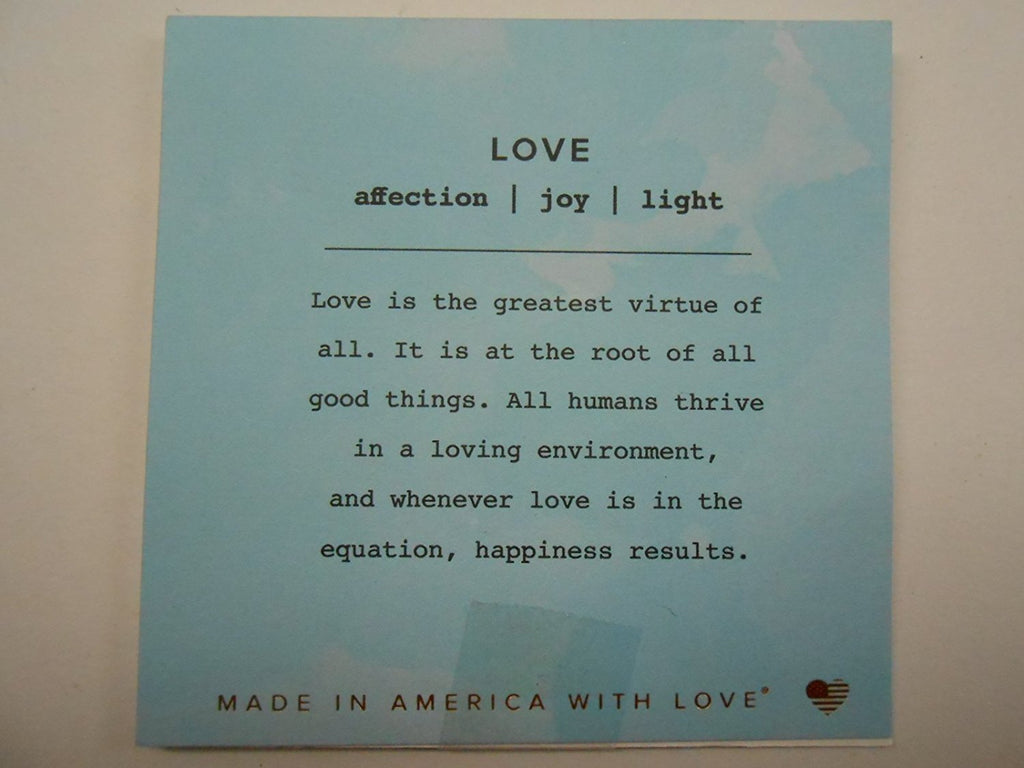 LOVE
affection | joy | light
Love is the greatest virtue of
all. It is at the root of all
good things. All humans thrive
in a loving environment,
and whenever love is in the
equation, happiness results.
MADE IN AMERICA WITH LOVE®